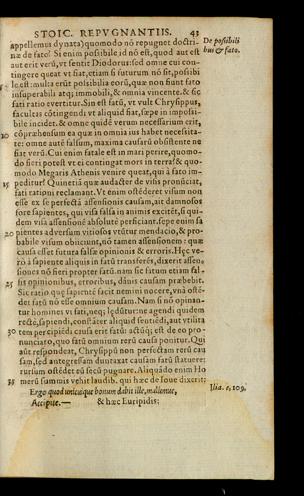 STOIC. REPVGNANTIIS. 43
appellemus dynata) quomodo nō repugnet doctri-
næ de fato? Si enim possibile id nō est, quod aut est
aut erit verū, vt sentit Diodorus: sed omne cui con-
tingere queat vt fiat, etiam si futurum nō sit, possibi
le est: multa erūt possibilia eorū, quæ non sunt fato
insuperabili atq; immobili, & omnia vincente. & sic
fati ratio evertitur. Sin est fatū, vt vult Chrysippus,
facultas cōtingendi vt aliquid fiat, sæpe in impossi-
bile incidet. & omne quidē verum necessarium erit,
10 cōpræhensum ea quæ in omnia ius habet necessita-
te: omne autē falsum, maxima causarū obsistente ne
fiat verū. Cui enim fatale est in mari perire, quomo-
do fieri potest vt ei contingat mors in terra? & quo-
modo Megaris Athenis venire queat, qui à fato im-
15 peditur? Quinetiā quæ audacter de visis pronūciat,
fati rationi reclamant. Vt enim ostēderet visum non
esse ex se perfectā assensionis causam, ait damnosos
fore sapientes, qui visa falsa in animis excitēt, si qui-
dem visa assensionē absolutè perficiant. sepe enim sa
20 pientes adversum vitiosos vtūtur mendacio, & pro-
babile visum obiiciunt, nō tamen assensionem: quæ
causa esset futura falsæ opinionis & erroris. Hęc ve-
rò à sapiente aliquis in fatū transferēs, dixerit assen-
siones nō fieri propter fatū. nam sic fatum etiam fal-
25 sis opinionibus, erroribus, dānis causam præbebit.
Sic ratio quę sapientē facit nemini nocere, vnà ostē-
det fatū nō esse omnium causam. Nam si nō opinan-
tur homines vi fati, neq; lędūtur: ne agendi quidem
rectè, sapiendi, constāter aliquid sentiēdi, aut vtilita
30 tem percipiēdi causa erit fatū: actūq; est de eo pro-
nunciato, quo fatū omnium rerū causa ponitur. Qui
aūt respondeat, Chrysippū non perfectam rerū cau
sam, sed antegressam duntaxat causam fatū statuere:
rursum ostēdet eū secū pugnare. Aliquādo enim Ho
35 merū summis vehit laudib. qui hæc de Ioue dixerit:
Ergo quod unicuique bonum dabit ille, malumue,
Accipite.— & hæc Euripidis:
De possibili
bus & fato.
Ilia. o, 109.